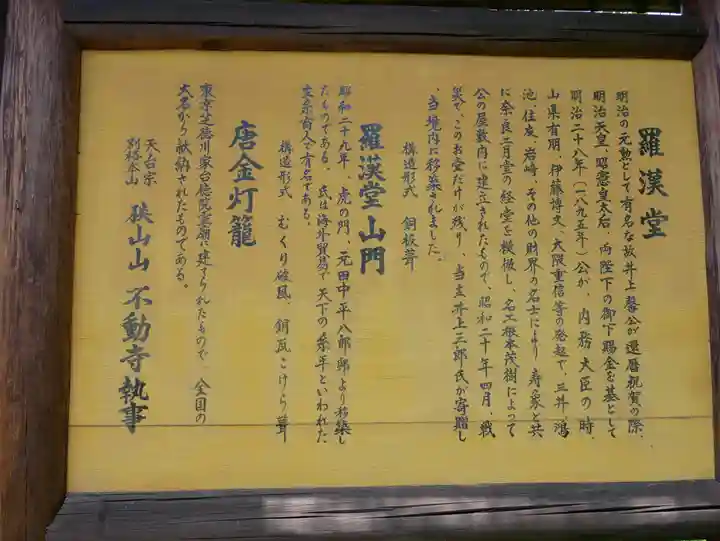 羅漢堂
明治の元勲として有名な故井上馨公が還暦祝賀の際、
明治天皇、昭憲皇太后、両陛下の御下賜金を基として
明治二十八年(一八九五年)公が、内務大臣の時、
山県有朋、伊藤博文、大隈重信等の発起で、三井、鴻
池、住友、岩崎、その他の財界の名士により、寿象と共
に奈良三月堂の経堂を模倣し、名工根本茂樹によって
公の屋敷内に建立されたもので、昭和二十年四月、戦
災で、このお堂だけが残り、当主井上三郎氏が寄贈し
、当境内に移築されました。
構造形式 銅板葺
羅漢堂山門
昭和二十九年、虎の門、元田中平八郎邸より移築し
たものである。氏は海外貿易で天下の糸平といわれた
生糸商人で有名である。
構造形式 むくり破風、銅瓦こけら葺
唐金灯籠
東京芝徳川家台徳院霊廟に建てられたもので、全国の
大名から献納されたものである。
天台宗
別格本山 狭山山 不動寺執事